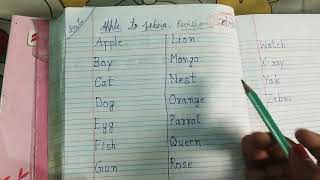 Apple to zebra. Revision
Apple
Boy
Cat
Dog
Egg
Fish
Gun
Lion
Mango
Nest
Orange
Parrot
Queen
Rose
Watch
X-ray
Yak
Zebra